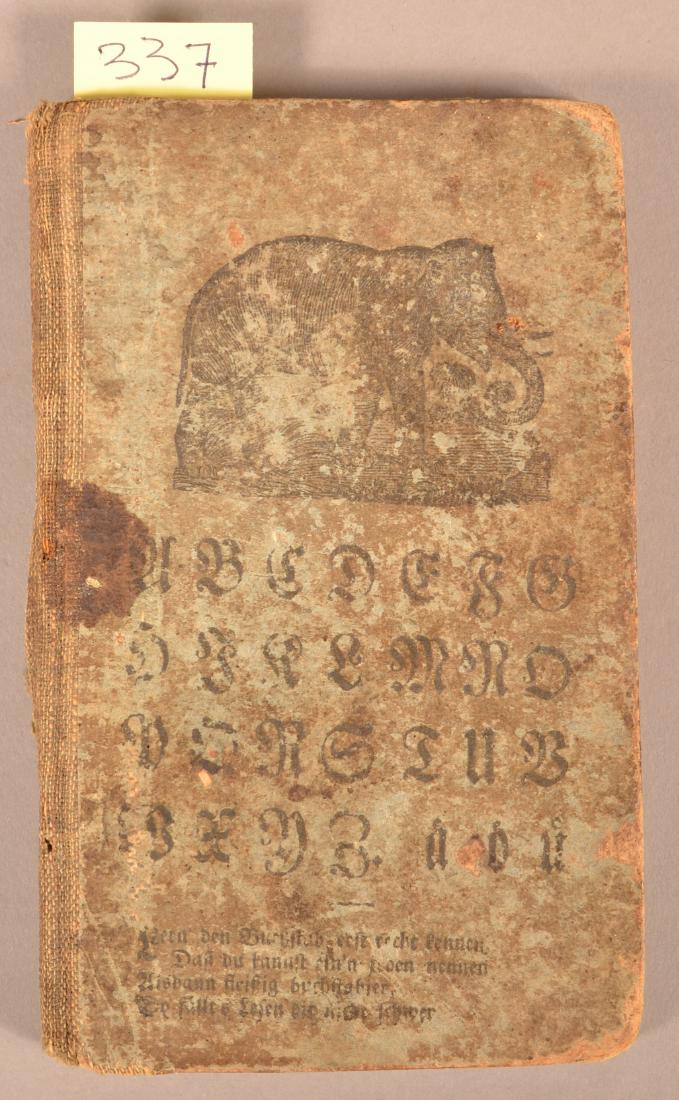 337
A B C D E F G
H J K L M N O
P Q R S T U V
W X Y Z. ä ö ü
Lern den Buchstab erst recht kennen,
Daß du kannst ein'n jeden nennen
Alsdann fleißig buchstabier,
So fällt's Lesen dir nicht schwer